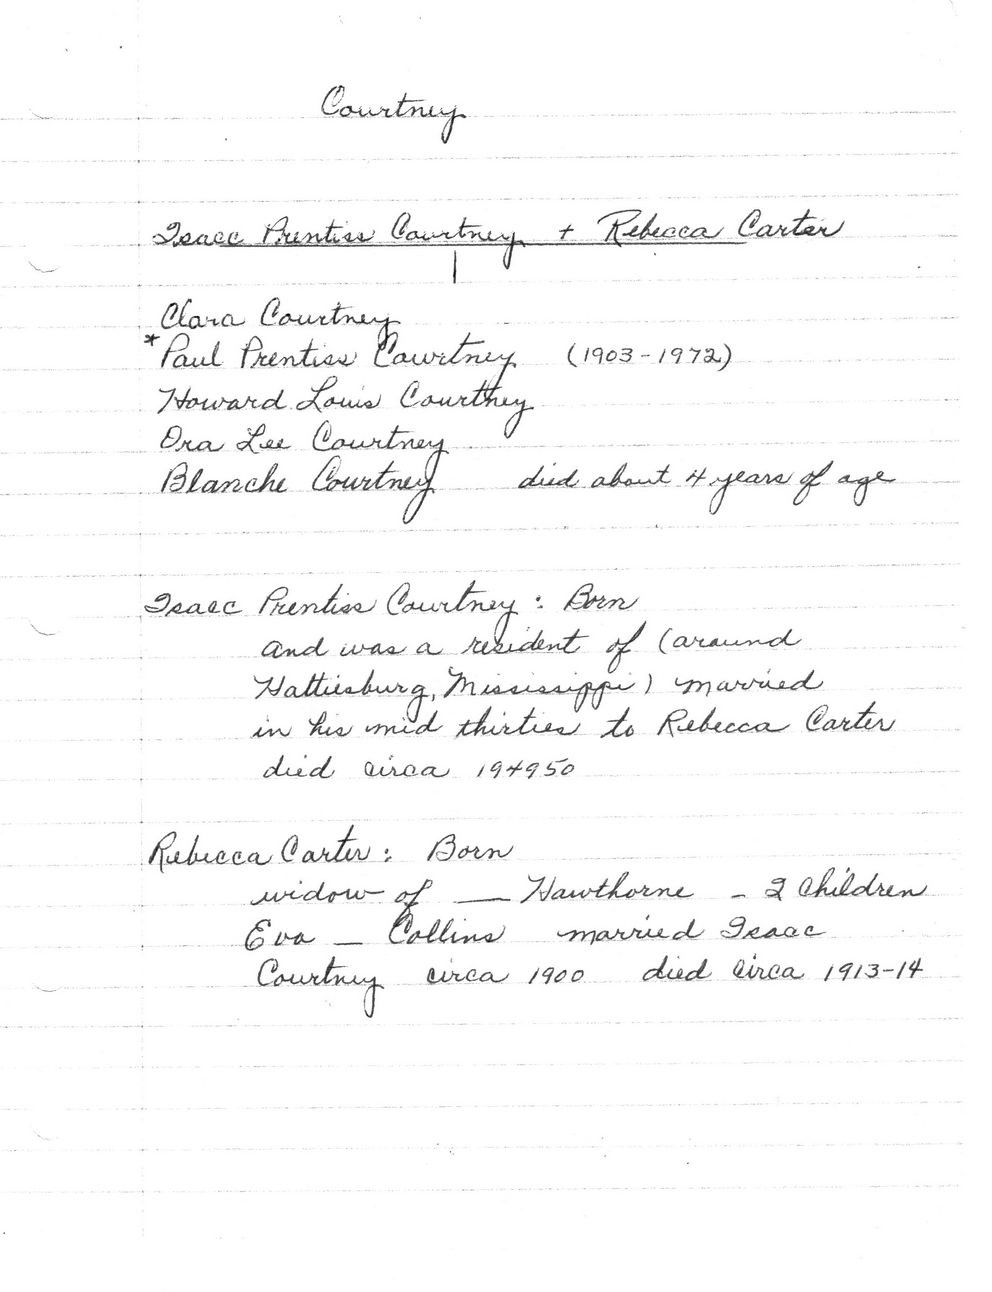 Courtney
Isacc Prentiss Courtney + Rebecca Carter
Clara Courtney
* Paul Prentiss Courtney (1903-1972)
Howard Louis Courtney
Ora Lee Courtney
Blanche Courtney died about 4 years of age
Isacc Prentiss Courtney : Born
and was a resident of (around
Hattiesburg, Mississippi) married
in his mid thirties to Rebecca Carter
died circa 194950
Rebecca Carter : Born
widow of __ Hawthorne - 2 children
Eva _ Collins married Isaac
Courtney circa 1900 died circa 1913-14